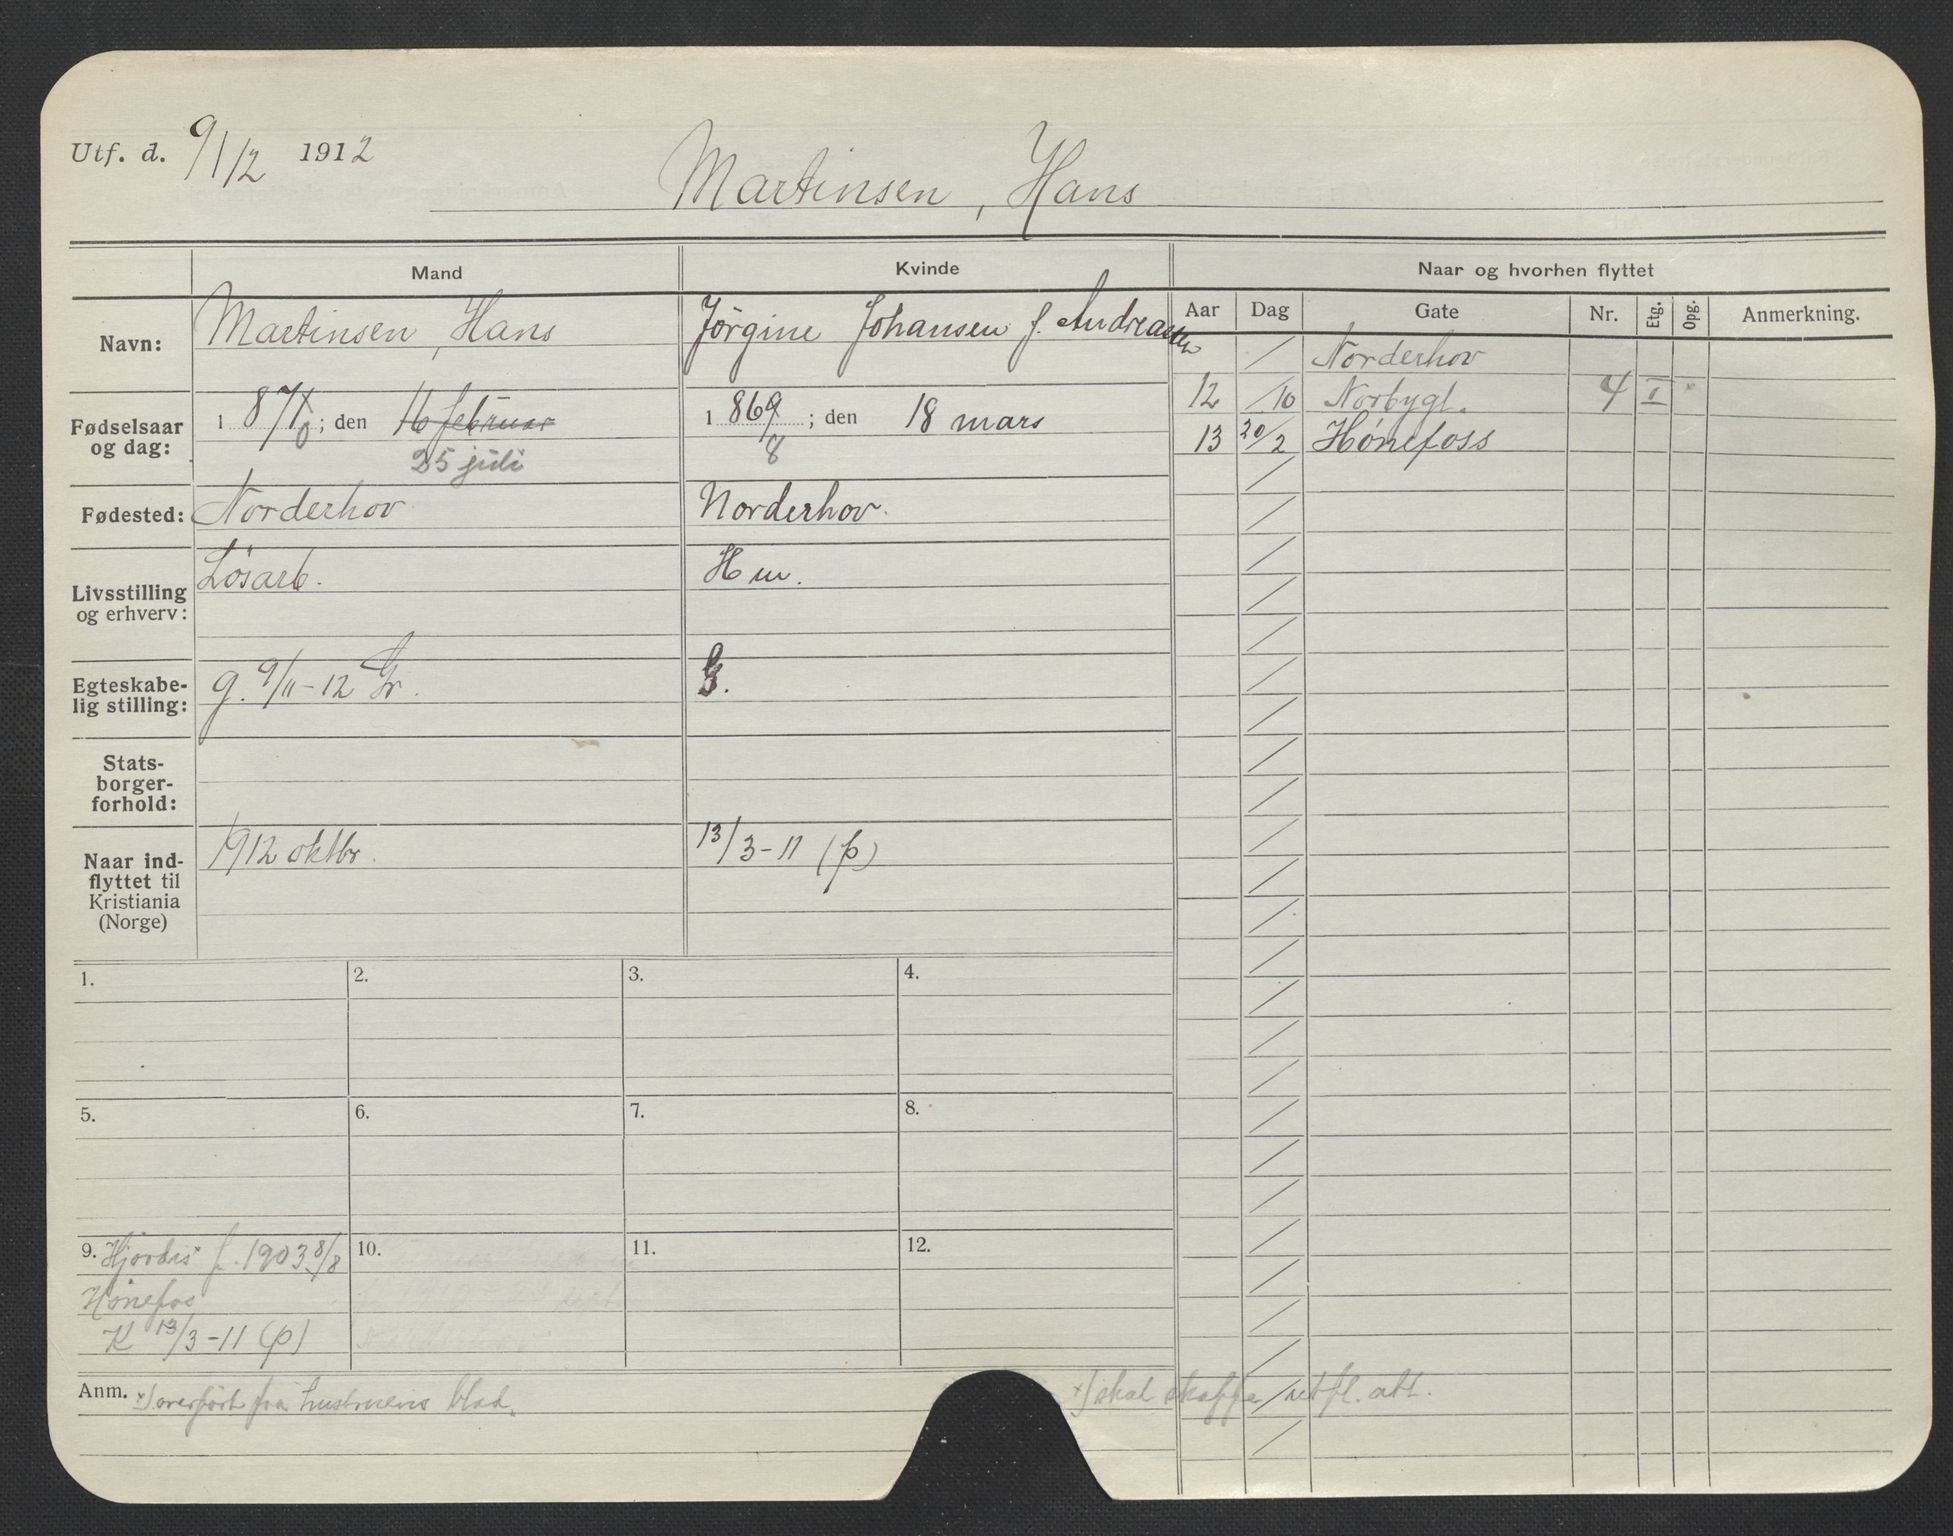 Utf. d. 9/12 1912
Martinsen, Hans
Mand
Kvinde
Naar og hvorhen flyttet
Navn:
Martinsen, Hans
Jørgine Johansen f. Andreassen
Aar Dag Gate Nr. Etg. Opg. Anmerkning.
/ Norderhov
12 /10 Norbygt. 4 I "
13 20/2 Hønefoss
Fødselsaar og dag:
1871 ; den 16 februar
0 25 juli
1869 ; den 18 mars
8
Fødested:
Norderhov
Norderhov.
Livsstilling og erhverv:
Løsarb.
Hm.
Egteskabe-
lig stilling:
g. 9/11-12 Gr.
G.
Stats-
borger-
forhold:
Naar ind-
flyttet til
Kristiania
(Norge)
1912 oktbr.
13/3-11 (p)
1. 2. 3. 4.
5. 6. 7. 8.
9. Hjørdis x f. 1903 8/8
Hønefos
K 13/3-11 (p)
10. 11. 12.
Anm. x) overført fra hustruens blad.
x) skal skaffe utfl. att.